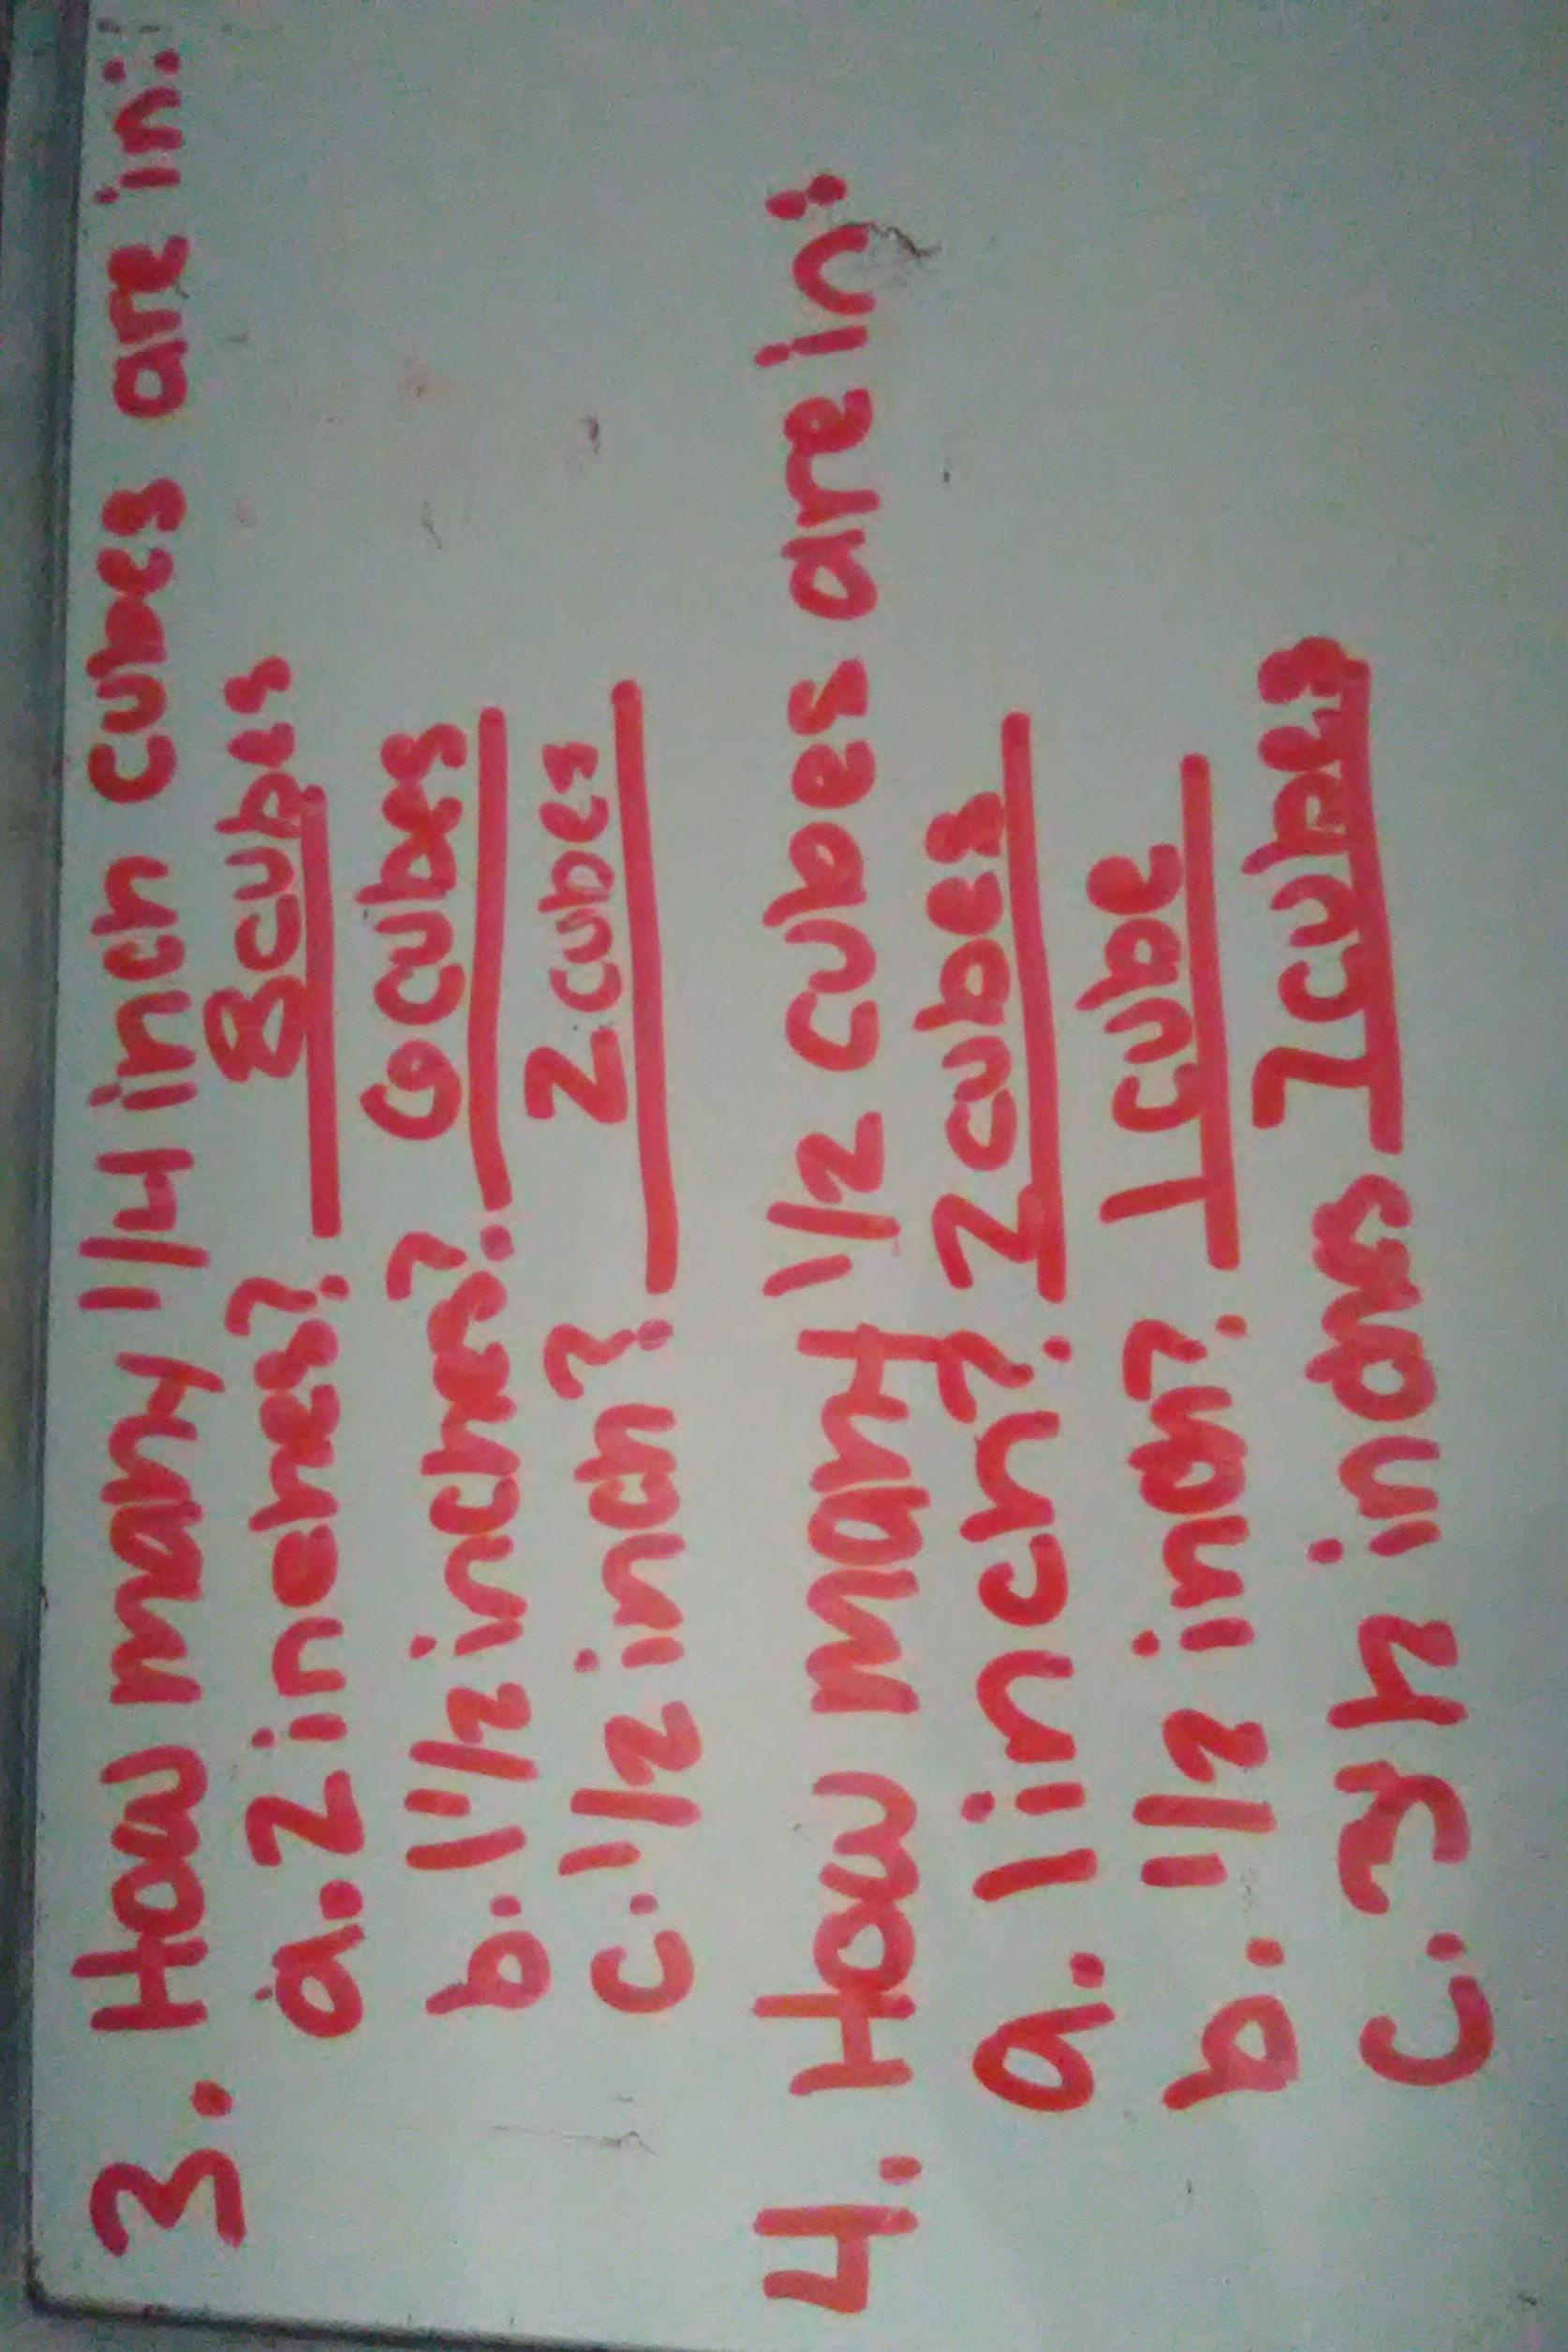 3. How many 1/4 inch cubes are in:
a. 2 inches? 8 cubes
b. 1 1/2 inches? 6 cubes
c. 1/2 inch? 2 cubes
4. How many 1/2 cubes are in:
a. 1 inch? 2 cubes
b. 1/2 inch? 1 cube
c. 7 cubes